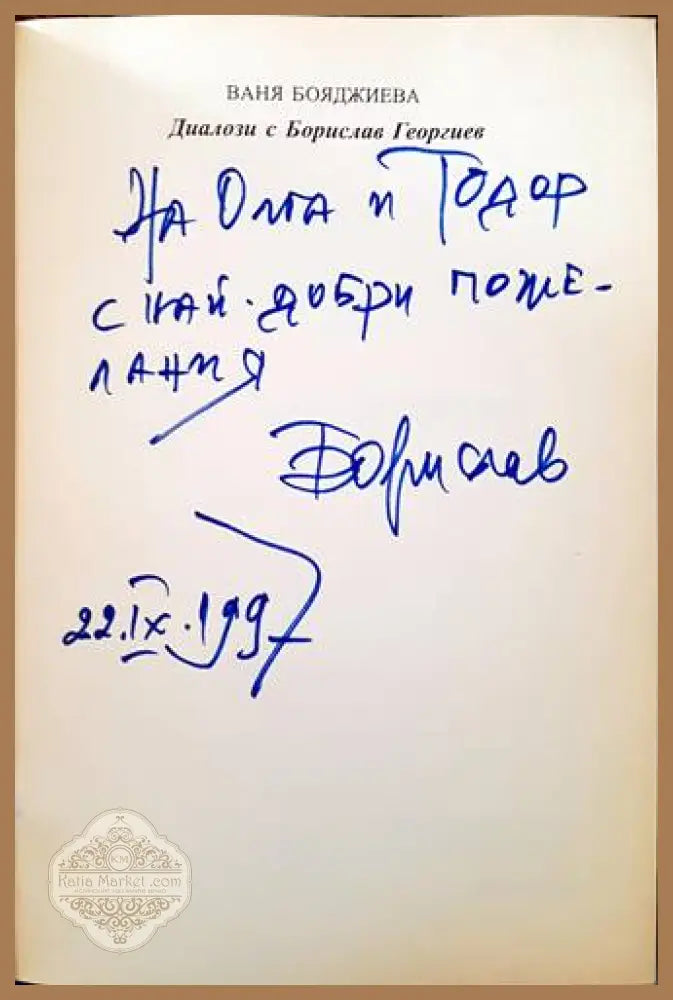 ВАНЯ БОЯДЖИЕВА
Диалози с Борислав Георгиев
На Олга и Тодор
с най-добри поже-
лания
Борислав
22.IX.1997
KM
Katia Market.com